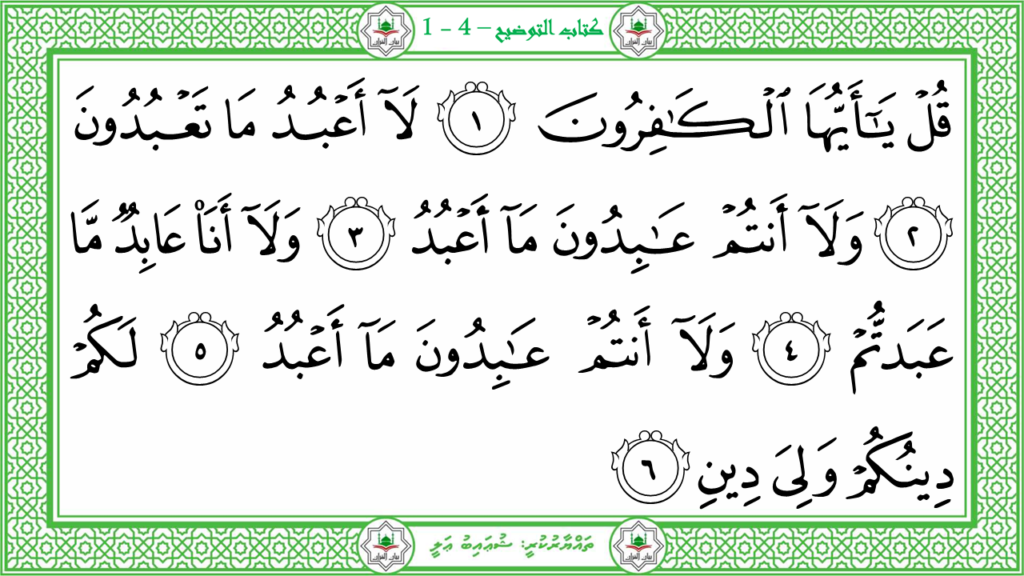 كتاب التوضيح – 4 - 1
قُلْ يَـٰٓأَيُّهَا ٱلْكَـٰفِرُونَ ١ لَآ أَعْبُدُ مَا تَعْبُدُونَ
٢ وَلَآ أَنتُمْ عَـٰبِدُونَ مَآ أَعْبُدُ ٣ وَلَآ أَنَا۠ عَابِدٌ مَّا
عَبَدتُّمْ ٤ وَلَآ أَنتُمْ عَـٰبِدُونَ مَآ أَعْبُدُ ٥ لَكُمْ
دِينُكُمْ وَلِىَ دِينِ ٦
ތައްޔާރުކުރީ: ޝުޢައިބު ޢަލީ